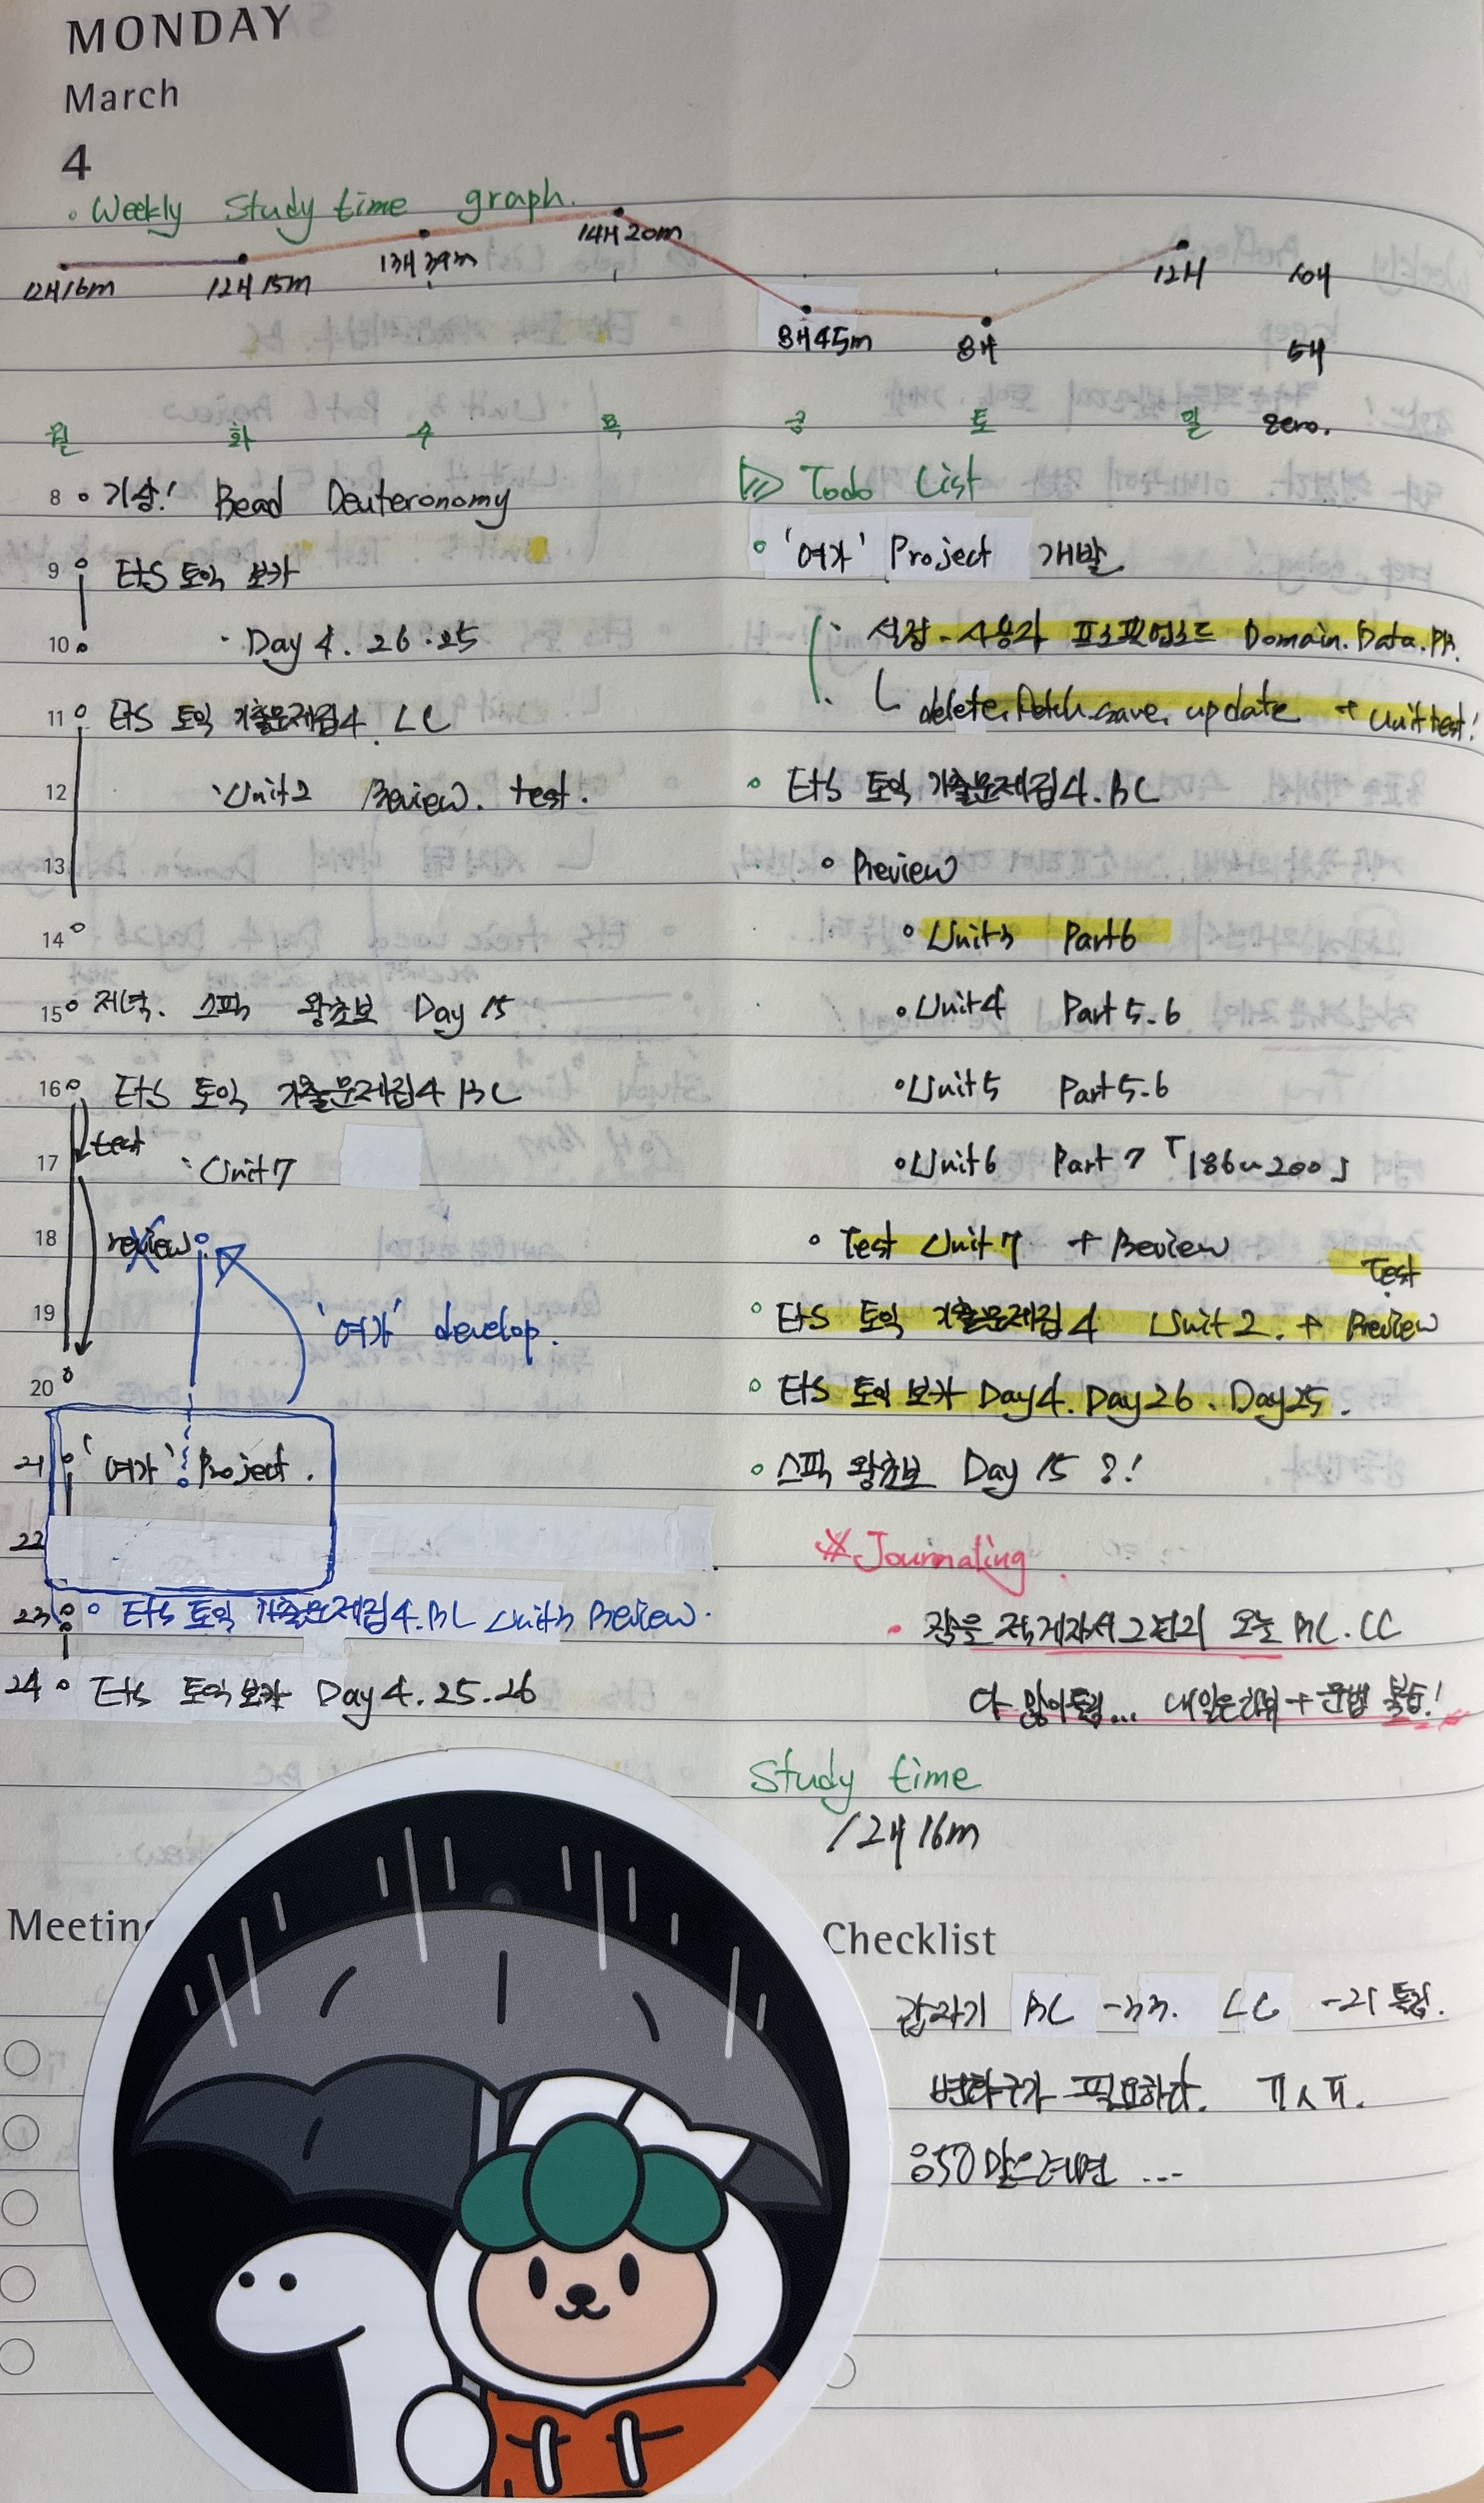 MONDAY
March
4
Weekly Study time graph.
12H 16m 12H 15m 13H 39m 14H 20m 8H 45m 8H 12H 10H
5H
월 화 수 목 금 토 일 Zero.
8 기상! Read Deuteronomy
9 ETS 토익 보카
10 Day 4. 26. 25
11 ETS 토익 기출문제집4 LC
12 Unit2 Review. test.
13
14
15 저녁. 스픽 왕초보 Day 15
16 ETS 토익 기출문제집4 RC
test
17 Unit7
18 review
19 '여가' develop.
20
21 '여가' Project.
22
23 ETS 토익 기출문제집4. RC Unit3 Review.
24 ETS 토익 보카 Day 4. 25. 26
Todo List
'여가' Project 개발
설정 - 사용자 Domain. Data.
delete. fetch. save. update + Unit test!
ETS 토익 기출문제집4. RC
Preview
Unit3 Part6
Unit4 Part 5. 6
Unit5 Part 5. 6
Unit6 Part 7 「186~200」
Test Unit7 + Review
Test
ETS 토익 기출문제집4 Unit2. + Review
ETS 토익 보카 Day4. Day26. Day25.
스픽 왕초보 Day 15 ?!
Journaling
잠을 적게자서 그런지 오늘 RC. LC
다 많이 틀림... 내일은 + 문법 복습!
Study time
12H 16m
Meeting
Checklist
갑자기 RC -33. LC -21 틀림.
변화구가 필요하다. ㅠㅅㅠ.
850 맞으려면 ...